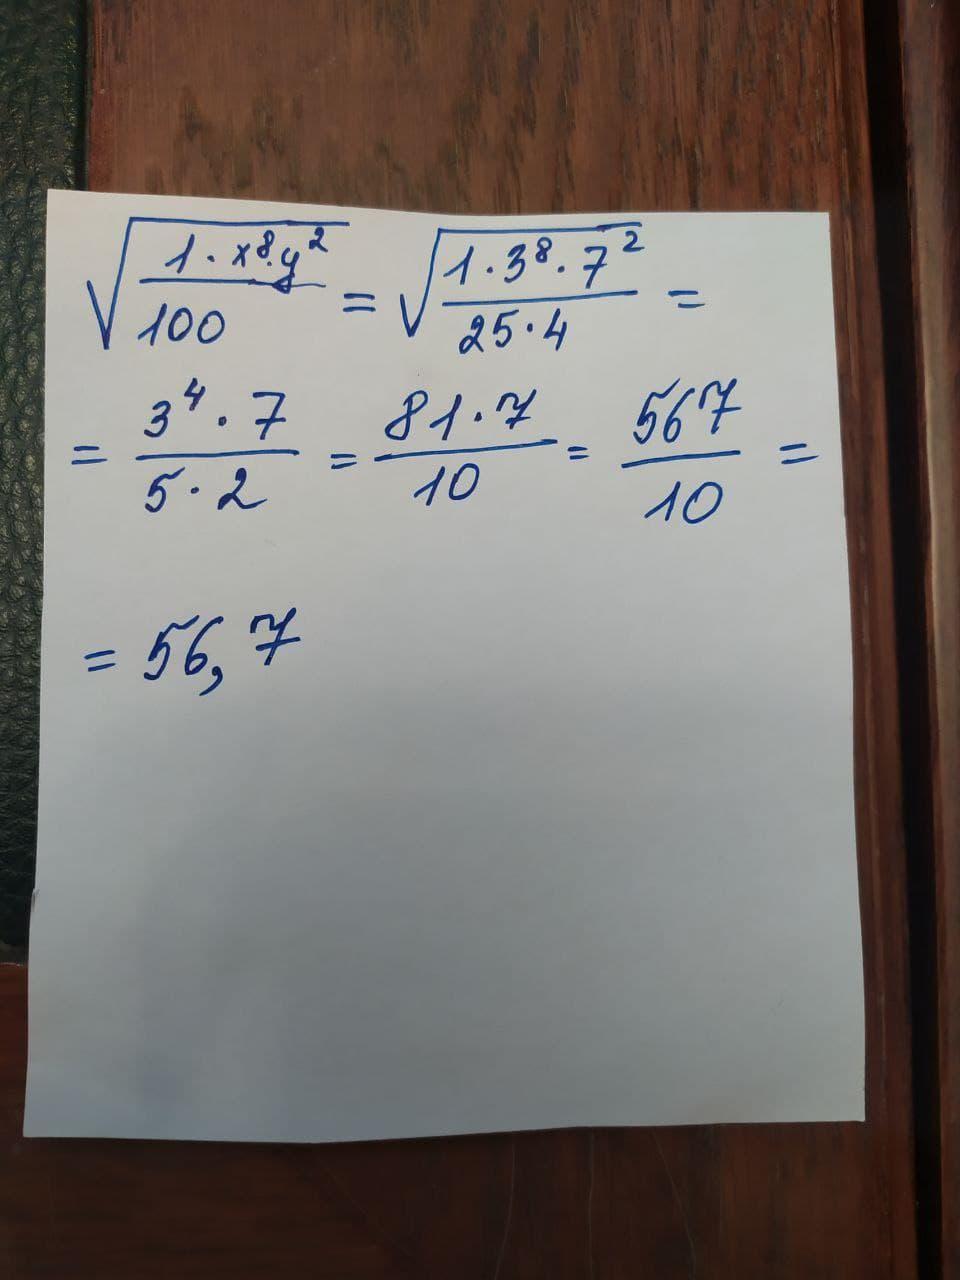 √(1·x⁸·y²/100) = √(1·3⁸·7²/25·4) =
= 3⁴·7/5·2 = 81·7/10 = 567/10 =
= 56,7